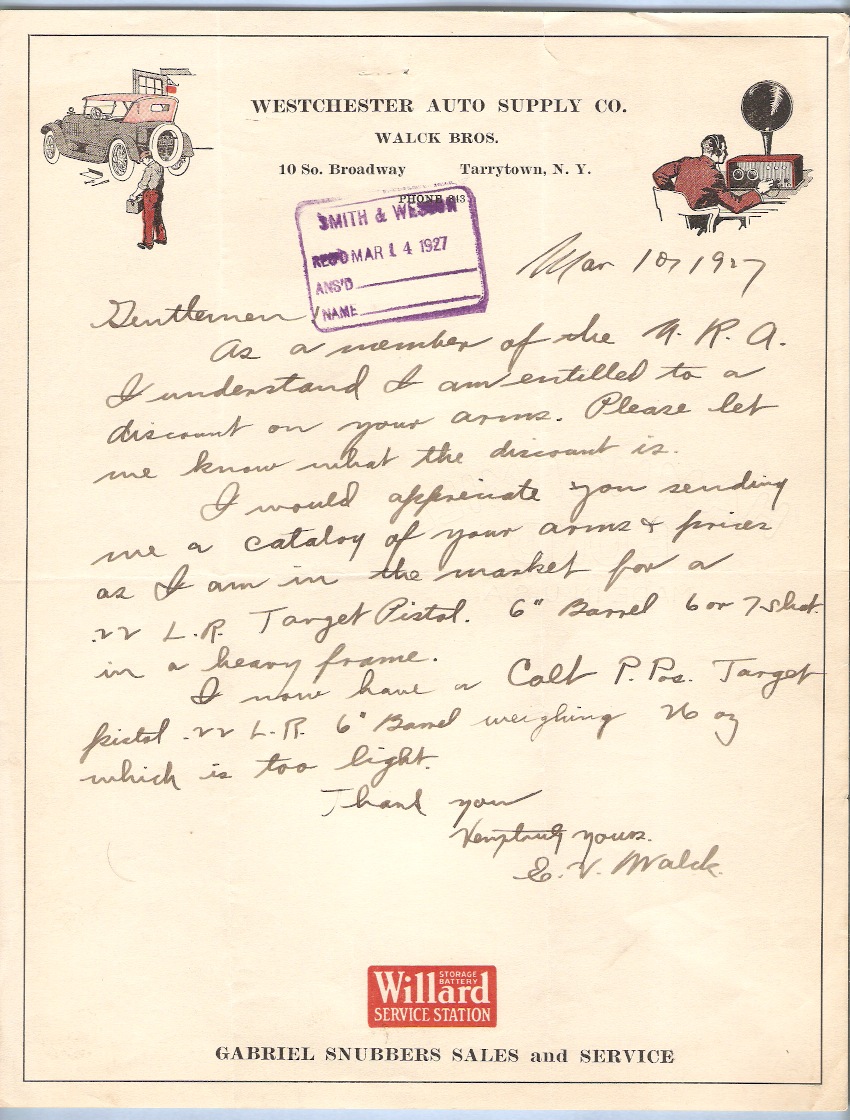 WESTCHESTER AUTO SUPPLY CO.
WALCK BROS.
10 So. Broadway Tarrytown, N. Y.
PHONE 343
SMITH & WESSON
REC'D MAR 14 1927
ANS'D
NAME
Mar 10, 1927
Gentlemen
As a member of the N. R. A.
I understand I am entitled to a
discount on your arms. Please let
me know what the discount is.
I would appreciate you sending
me a catalog of your arms & prices
as I am in the market for a
.22 L.R. Target Pistol. 6" Barrel 6 or 7 shot.
in a heavy frame.
I now have a Colt P. Pos. Target
pistol .22 L.R. 6" Barrel weighing 26 oz
which is too light.
Thank you
Very truly yours.
E. V. Walck.
Willard STORAGE BATTERY
SERVICE STATION
GABRIEL SNUBBERS SALES and SERVICE